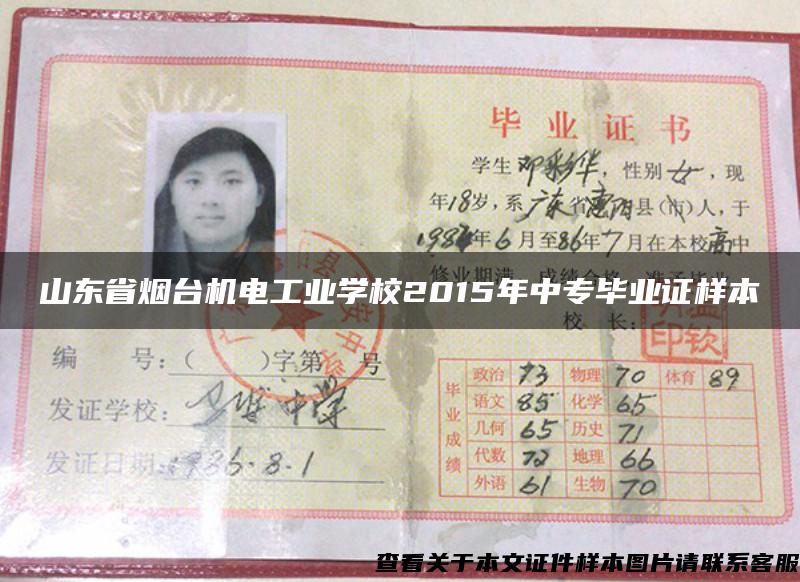 毕业证书
学生邓彩华，性别女，现
年18岁，系广东省惠阳县（市）人，于
1984年6月至86年7月在本校高中
修业期满，成绩合格，准予毕业
山东省烟台机电工业学校2015年中专毕业证样本
校 长：
编 号：（ ）字第 号
发证学校：
发证日期：1986.8.1
毕业成绩
政治 73 物理 70 体育 89
语文 85 化学 65
几何 65 历史 71
代数 72 地理 66
外语 61 生物 70
查看关于本文证件样本图片请联系客服